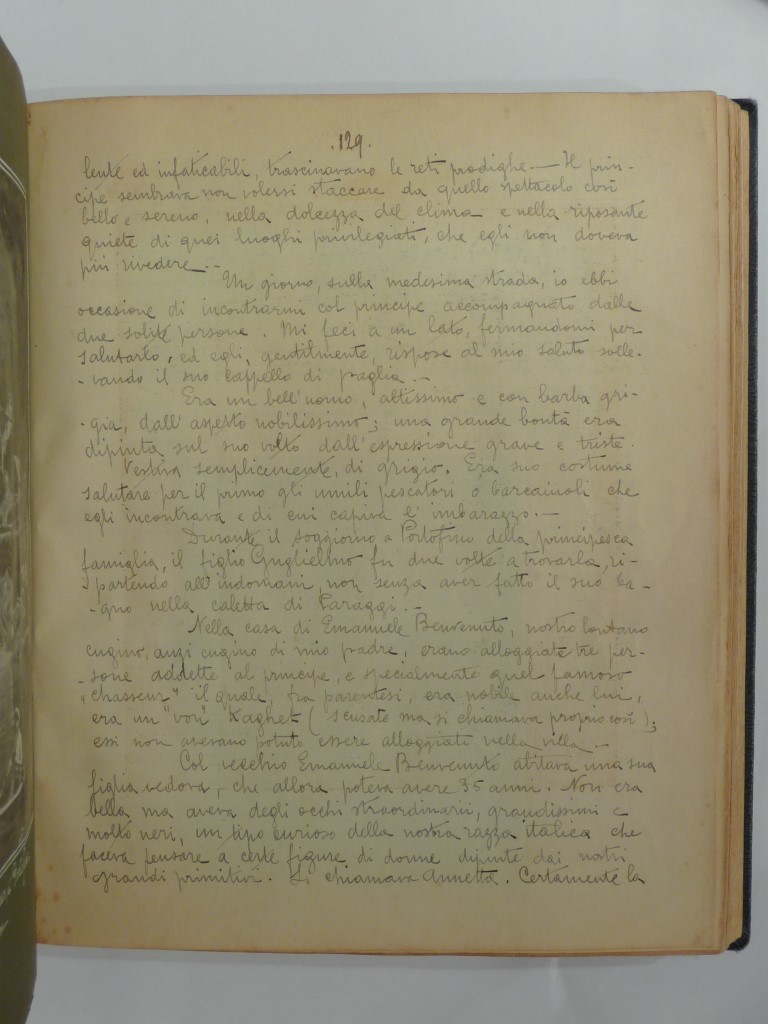 .129.
lente ed infaticabili, trascinavano le reti prodighe.— Il prin-
cipe sembrava non volersi staccare da quello spettacolo così
bello e sereno, nella dolcezza del clima e nella riposante
quiete di quei luoghi privilegiati, che egli non doveva
più rivedere.—
Un giorno, sulla medesima strada, io ebbi
occasione di incontrarmi col principe accompagnato dalle
due solite persone. Mi feci a un lato, fermandomi per
salutarlo, ed egli, gentilmente, rispose al mio saluto solle-
-vando il suo cappello di paglia.—
Era un bell'uomo, altissimo e con barba gri-
-gia, dall'aspetto nobilissimo; una grande bontà era
dipinta sul suo volto dall'espressione grave e triste.
Vestiva semplicemente, di grigio. Era suo costume
salutare per il primo gli umili pescatori o barcaiuoli che
egli incontrava e di cui capiva l'imbarazzo.—
Durante il soggiorno a Portofino della principesca
famiglia, il figlio Guglielmo fu due volte a trovarla, ri-
partendo all'indomani, non senza aver fatto il suo ba-
-gno nella caletta di Paraggi.—
Nella casa di Emanuele Benvenuto, nostro lontano
cugino, anzi cugino di mio padre, erano alloggiate tre per-
-sone addette al principe, e specialmente quel famoso
"chasseur" il quale, fra parentesi, era nobile anche lui,
era un "von" Kaghet (scusate ma si chiamava proprio così);
essi non avevano potuto essere alloggiati nella villa.—
Col vecchio Emanuele Benvenuto abitava una sua
figlia vedova, che allora poteva avere 35 anni. Non era
bella, ma aveva degli occhi straordinarii, grandissimi e
molto neri, un tipo curioso della nostra razza italica che
faceva pensare a certe figure di donne dipinte dai nostri
grandi primitivi. Si chiamava Annetta. Certamente la